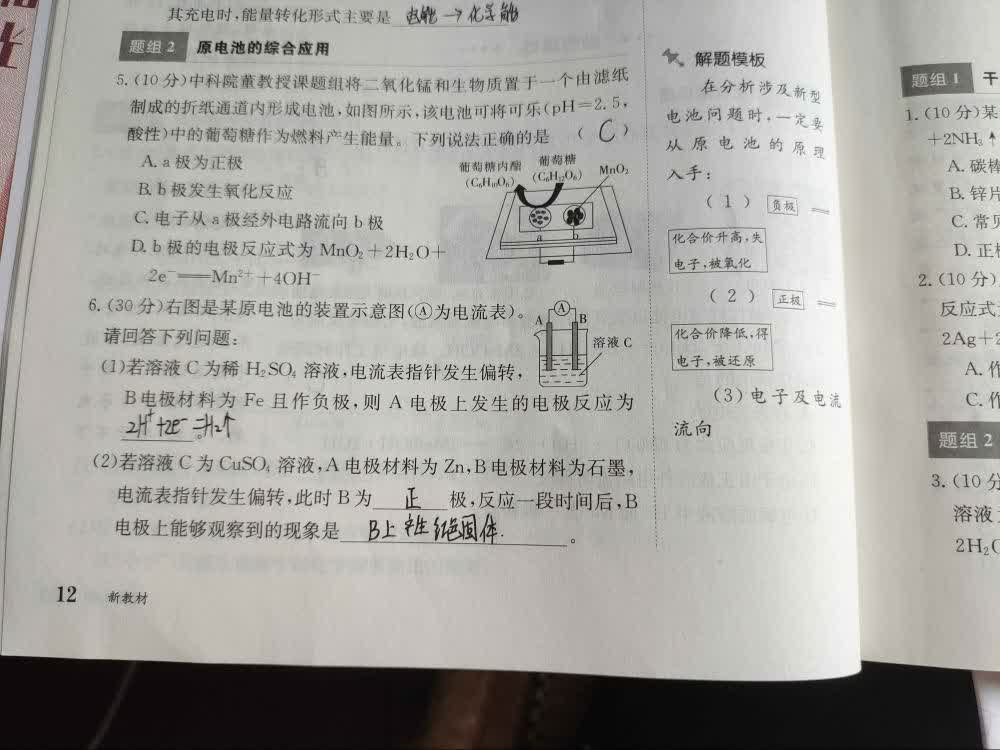 其充电时,能量转化形式主要是 电能→化学能
题组2 原电池的综合应用
5.(10分)中科院董教授课题组将二氧化锰和生物质置于一个由滤纸
制成的折纸通道内形成电池,如图所示,该电池可将可乐(pH=2.5,
酸性)中的葡萄糖作为燃料产生能量。下列说法正确的是 ( C )
A. a极为正极
B. b极发生氧化反应
C. 电子从a极经外电路流向b极
D. b极的电极反应式为MnO₂+2H₂O+
2e⁻══Mn²⁺+4OH⁻
葡萄糖内酯 葡萄糖
(C₆H₁₀O₆) (C₆H₁₂O₆) MnO₂
a b
6.(30分)右图是某原电池的装置示意图(Ⓐ为电流表)。
请回答下列问题:
A Ⓐ B
溶液C
(1)若溶液C为稀H₂SO₄溶液,电流表指针发生偏转,
B电极材料为Fe且作负极,则A电极上发生的电极反应为
2H⁺+2e⁻=H₂↑。
(2)若溶液C为CuSO₄溶液,A电极材料为Zn,B电极材料为石墨,
电流表指针发生偏转,此时B为 正 极,反应一段时间后,B
电极上能够观察到的现象是 B上产生红色固体.。
12 新教材
解题模板
在分析涉及新型
电池问题时,一定要
从原电池的原理
入手:
(1) 负极 ══
化合价升高,失
电子,被氧化
(2) 正极 ══
化合价降低,得
电子,被还原
(3)电子及电流
流向
题组1 干
1.(10分)某
+2NH₃↑
A. 碳棒
B. 锌片
C. 常见
D. 正极
2.(10分)
反应式
2Ag+2
A. 作
C. 作
题组2
3.(10分
溶液
2H₂O